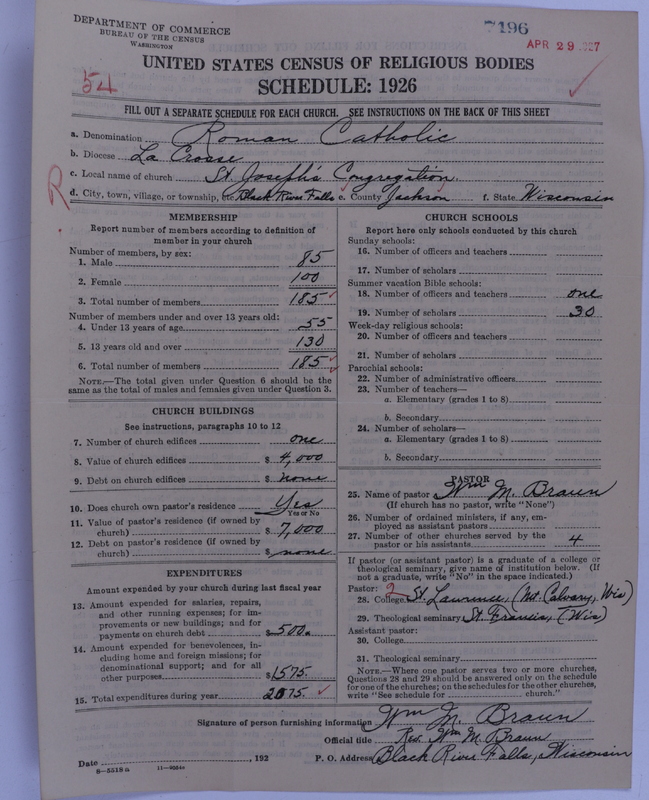 DEPARTMENT OF COMMERCE
BUREAU OF THE CENSUS
WASHINGTON
7196
APR 29 1927
UNITED STATES CENSUS OF RELIGIOUS BODIES
SCHEDULE: 1926
54
FILL OUT A SEPARATE SCHEDULE FOR EACH CHURCH. SEE INSTRUCTIONS ON THE BACK OF THIS SHEET
a. Denomination Roman Catholic
b. Diocese La Crosse
c. Local name of church St. Joseph's Congregation.
R
d. City, town, village, or township, etc Black River Falls e. County Jackson f. State Wisconsin
MEMBERSHIP
Report number of members according to definition of
member in your church
Number of members, by sex:
1. Male 85
2. Female 100
3. Total number of members 185
Number of members under and over 13 years old:
4. Under 13 years of age 55
5. 13 years old and over 130
6. Total number of members 185
NOTE.—The total given under Question 6 should be the
same as the total of males and females given under Question 3.
CHURCH BUILDINGS
See instructions, paragraphs 10 to 12
7. Number of church edifices one
8. Value of church edifices $ 4,000
9. Debt on church edifices $ none
10. Does church own pastor's residence Yes
Yes or No
11. Value of pastor's residence (if owned by
church) $ 7,000
12. Debt on pastor's residence (if owned by
church) $ none
EXPENDITURES
Amount expended by your church during last fiscal year
13. Amount expended for salaries, repairs,
and other running expenses; for im-
provements or new buildings; and for
payments on church debt $ 500.
14. Amount expended for benevolences, in-
cluding home and foreign missions; for
denominational support; and for all
other purposes $ 1575.
15. Total expenditures during year 2075.
CHURCH SCHOOLS
Report here only schools conducted by this church
Sunday schools:
16. Number of officers and teachers
17. Number of scholars
Summer vacation Bible schools:
18. Number of officers and teachers one
19. Number of scholars 30
Week-day religious schools:
20. Number of officers and teachers
21. Number of scholars
Parochial schools:
22. Number of administrative officers
23. Number of teachers—
a. Elementary (grades 1 to 8)
b. Secondary
24. Number of scholars—
a. Elementary (grades 1 to 8)
b. Secondary
PASTOR
25. Name of pastor Wm M. Braun
(If church has no pastor, write "None")
26. Number of ordained ministers, if any, em-
ployed as assistant pastors
27. Number of other churches served by the
pastor or his assistants 4
If pastor (or assistant pastor) is a graduate of a college or
theological seminary, give name of institution below. (If
not a graduate, write "No" in the space indicated.)
Pastor: 2
28. College St. Lawrence, (Mt. Calvary, Wis)
29. Theological seminary St. Francis, (Wis)
Assistant pastor:
30. College
31. Theological seminary
NOTE.—Where one pastor serves two or more churches,
Questions 28 and 29 should be answered only on the schedule
for one of the churches; on the schedules for the other churches,
write "See schedule for church."
Signature of person furnishing information Wm M. Braun
Official title Rev. Wm M. Braun
Date , 192 P. O. Address Black River Falls, Wisconsin
8—5518a